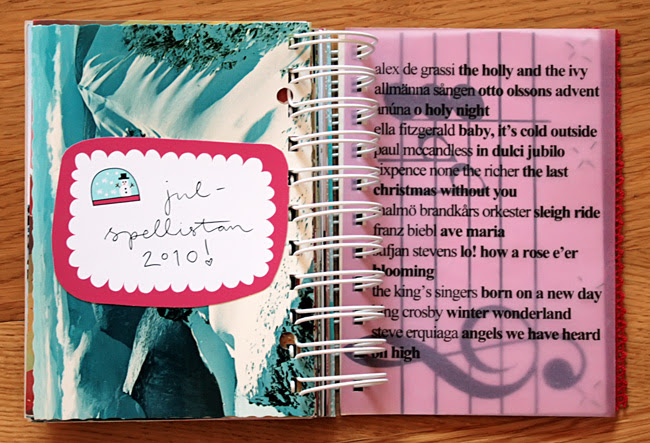 jul-
spellistan
2010!
alex de grassi the holly and the ivy
allmänna sången otto olssons advent
anúna o holy night
ella fitzgerald baby, it's cold outside
paul mccandless in dulci jubilo
sixpence none the richer the last
christmas without you
malmö brandkårs orkester sleigh ride
franz biebl ave maria
sufjan stevens lo! how a rose e'er
blooming
the king's singers born on a new day
bing crosby winter wonderland
steve erquiaga angels we have heard
on high